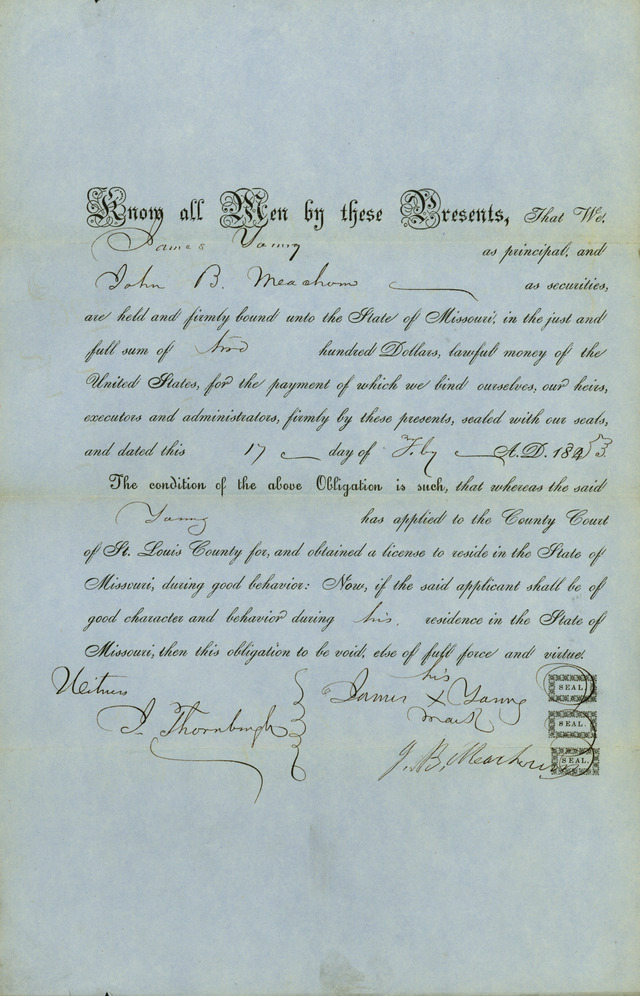 Know all Men by these Presents, That We,
James Young as principal, and
John B. Meachum as securities,
are held and firmly bound unto the State of Missouri, in the just and
full sum of two hundred Dollars, lawful money of the
United States, for the payment of which we bind ourselves, our heirs,
executors and administrators, firmly by these presents, sealed with our seals,
and dated this 17 day of Feby A.D. 1853.
The condition of the above Obligation is such, that whereas the said
Young has applied to the County Court
of St. Louis County for, and obtained a license to reside in the State of
Missouri, during good behavior: Now, if the said applicant shall be of
good character and behavior during his residence in the State of
Missouri, then this obligation to be void, else of full force and virtue.
Witness his
James X Young SEAL.
mark
Thornburgh SEAL.
J. B. Meachum SEAL.